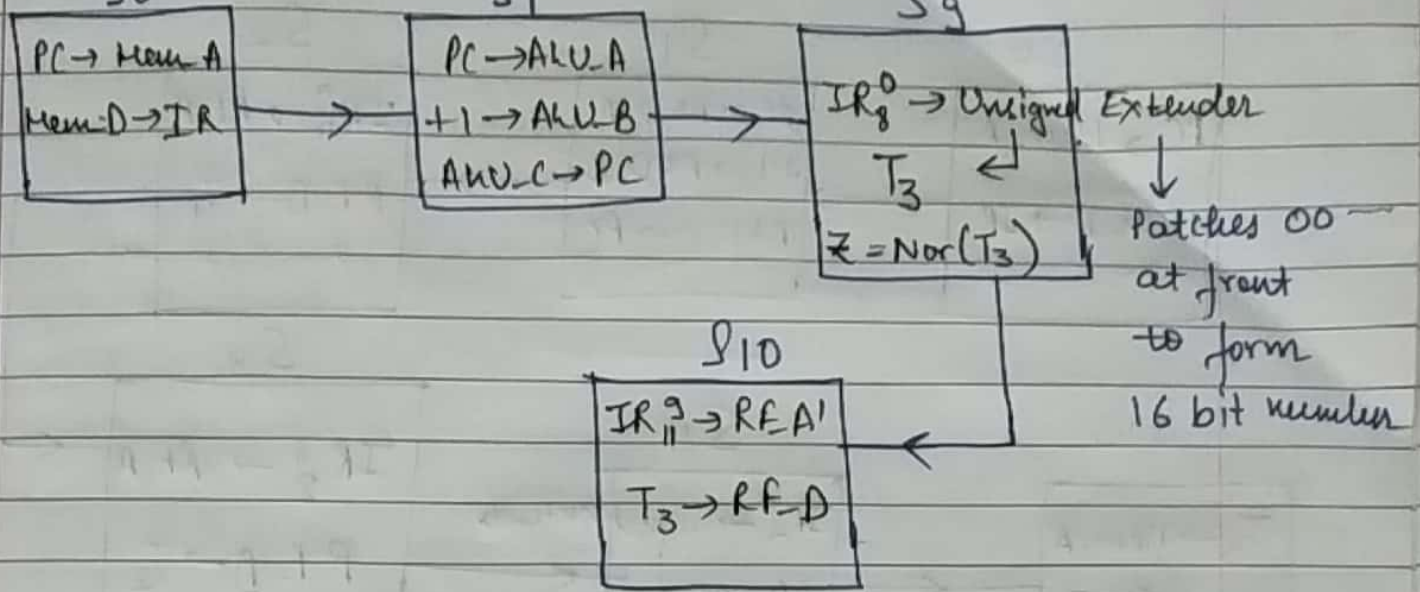 PC → Mem_A
Mem_D → IR
PC → ALU_A
+1 → ALU_B
ALU_C → PC
S9
IR⁰₈ → Unsigned Extender
T₃
Z = Nor(T₃)
Patches 00
at front
to form
16 bit number
S10
IR⁹₁₁ → RF_A'
T₃ → RF_D